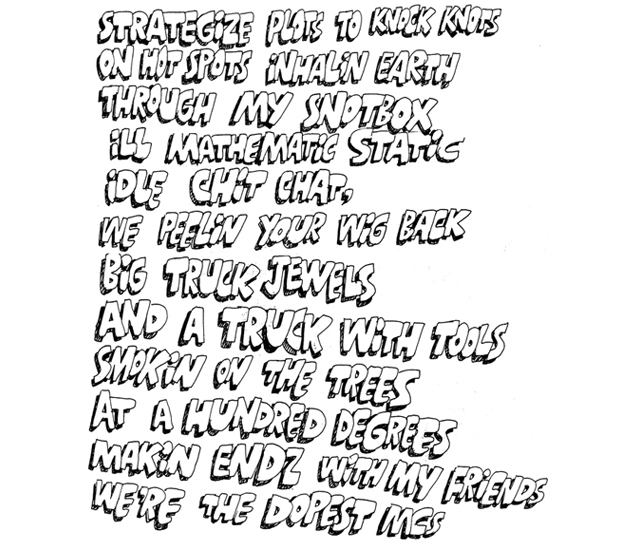 STRATEGiZE PLOTS TO KNOCK KNOTS
ON HOT SPOTS iNHALiN EARTH
THROUGH MY SNOTBOX
iLL MATHEMATiC STATiC
iDLE CHiT CHAT,
WE PEELiN YOUR WiG BACK
BiG TRUCK JEWELS
AND A TRUCK WiTH TOOLS
SMOKiN ON THE TREES
AT A HUNDRED DEGREES
MAKiN ENDZ WiTH MY FRiENDS
WE'RE THE DOPEST MCs